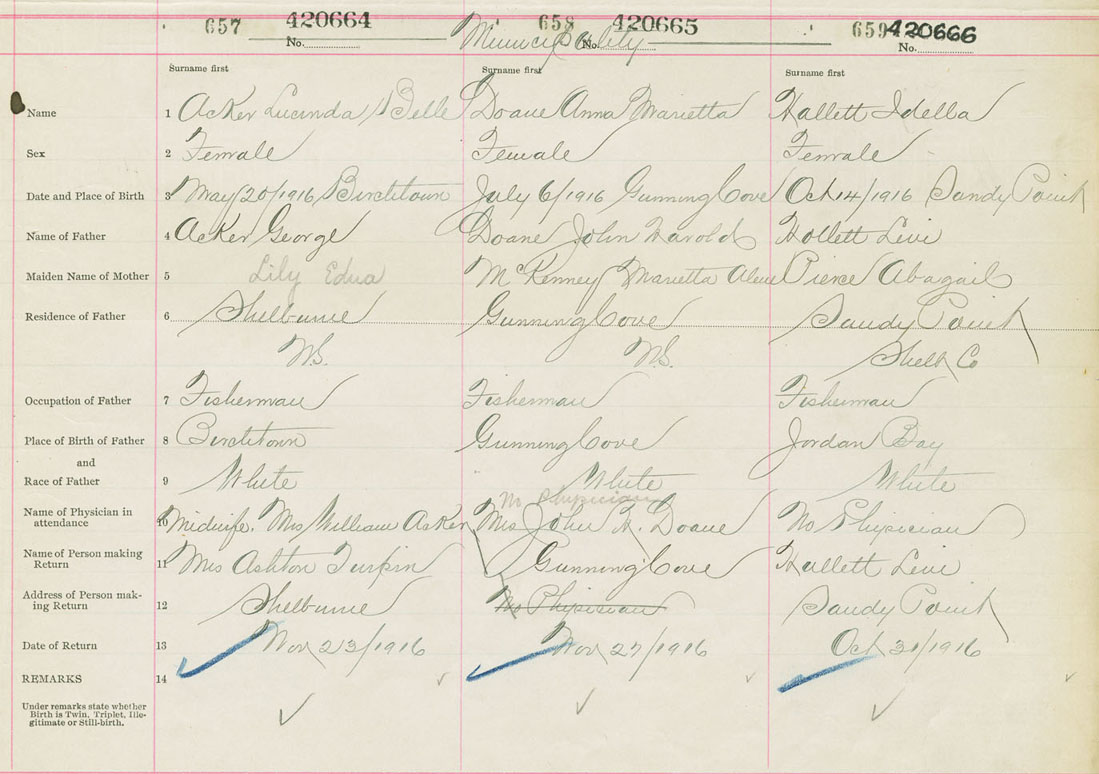 657 420664 658 420665 659 420666
No. Municipality No. No.
Surname first Surname first Surname first
Name 1 Acker Lucinda Belle Doane Anna Marietta Hallett Idella
Sex 2 Female Female Female
Date and Place of Birth 3 May 20/1916 Birchtown July 6/1916 Gunning Cove Oct 14/1916 Sandy Point
Name of Father 4 Acker George Doane John Harold Hollett Levi
Maiden Name of Mother 5 Lily Edna McKenney Marietta Pierce Abagail
Residence of Father 6 Shelburne Gunning Cove Sandy Point
N.S. N.S. Shelb Co
Occupation of Father 7 Fisherman Fisherman Fisherman
Place of Birth of Father 8 Birchtown Gunning Cove Jordan Bay
and
Race of Father 9 White White White
No Physician
Name of Physician in attendance 10 Midwife. Mrs William Acker Mrs John H. Doane No Physician
Name of Person making Return 11 Mrs Ashton Turpin Gunning Cove Hallett Levi
Address of Person making Return 12 Shelburne No Physician Sandy Point
Date of Return 13 Nov 23/1916 Nov 27/1916 Oct 31/1916
REMARKS 14
Under remarks state whether
Birth is Twin, Triplet, Ille-
gitimate or Still-birth.